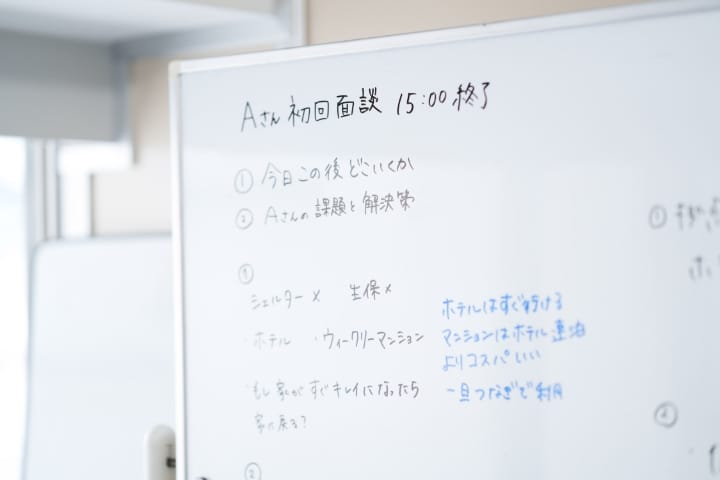 Aさん 初回面談 15:00 終了
① 今日この後どこいくか
② Aさんの課題と解決策
①
シェルター × 生保 ×
・ホテル ・ウィークリーマンション
・もし家がすぐキレイになったら
家に戻る？
ホテルはすぐ行ける
マンションはホテル連泊
よりコスパいい
一旦つなぎで利用
②
①
②